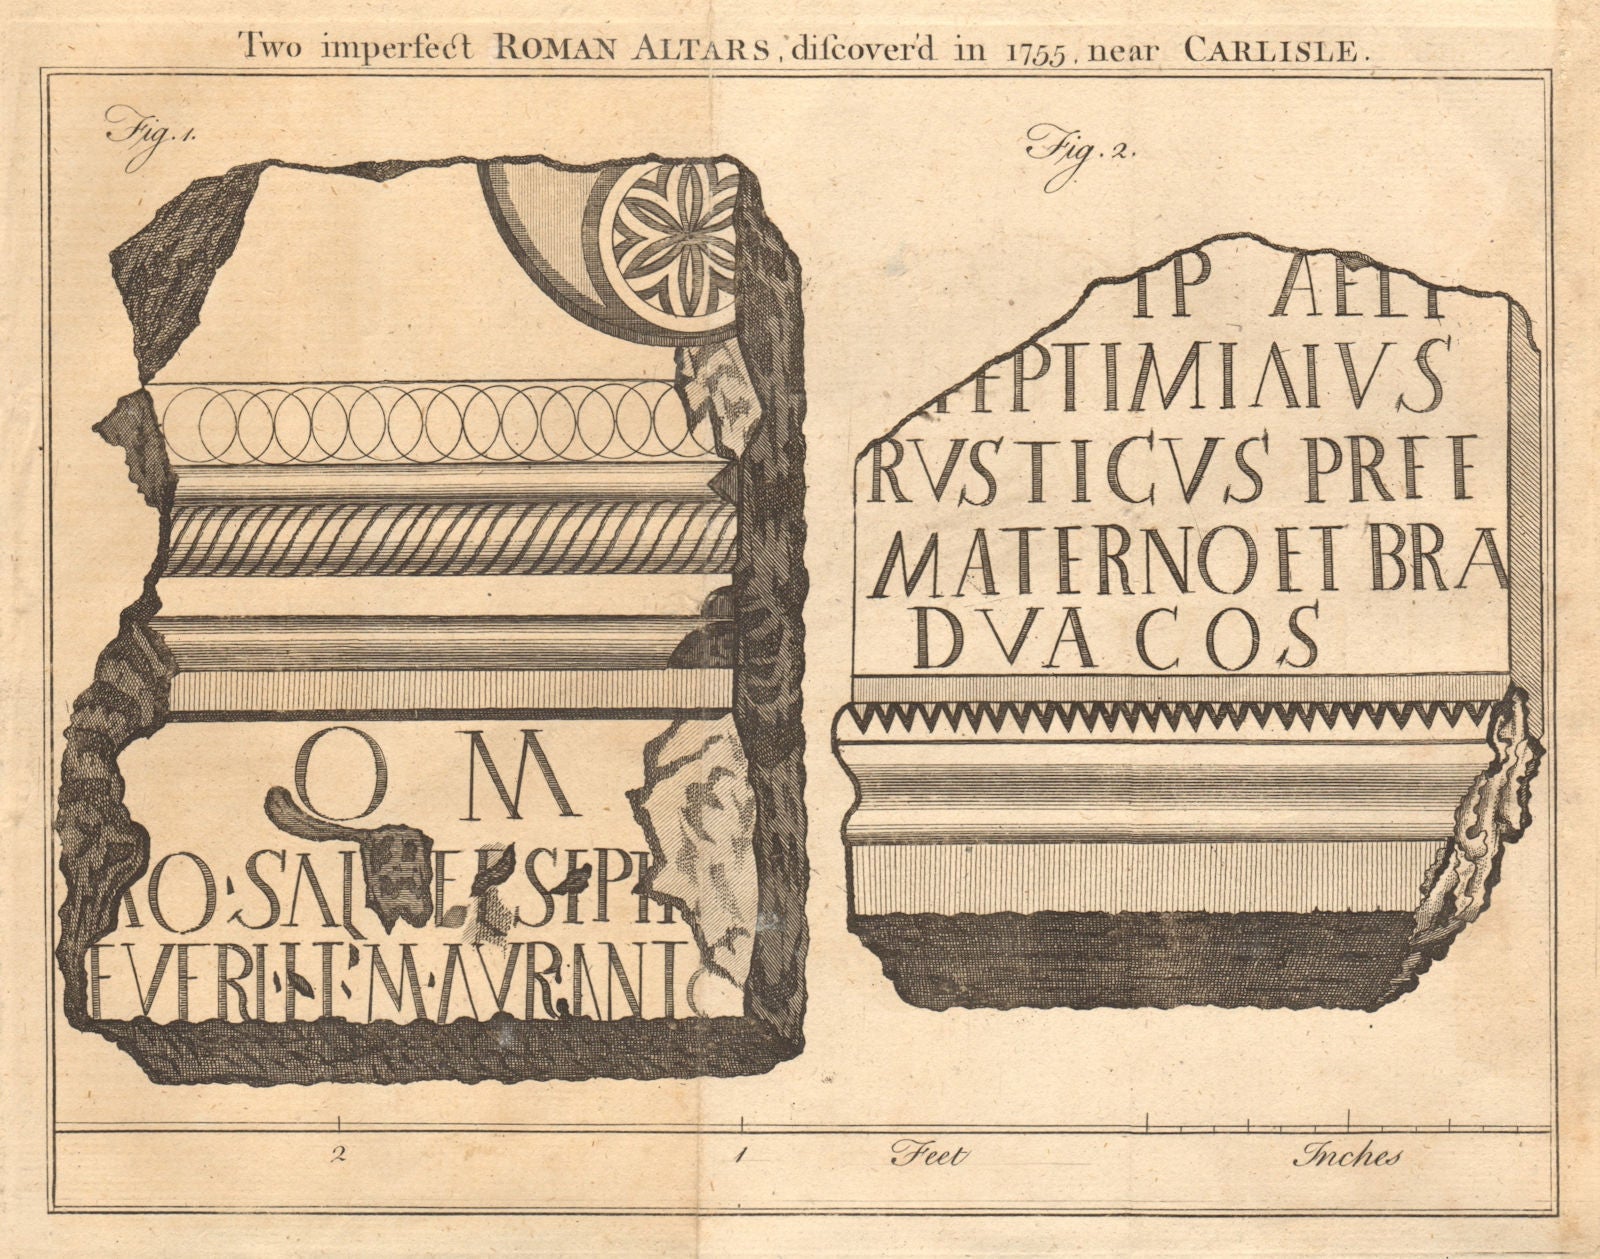 Two imperfect ROMAN ALTARS, diſcover'd in 1755, near CARLISLE.
Fig. 1.
O M
EVERI ET M·AVR·ANTO
Fig. 2.
IP AELI
EPTIMIAIVS
RVSTICVS PREF
MATERNO ET BRA
DVA COS
2 1 Feet Inches